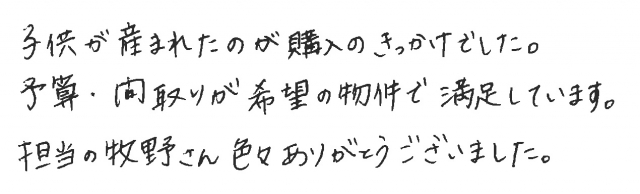 子供が産まれたのが購入のきっかけでした。
予算・間取りが希望の物件で満足しています。
担当の牧野さん色々ありがとうございました。